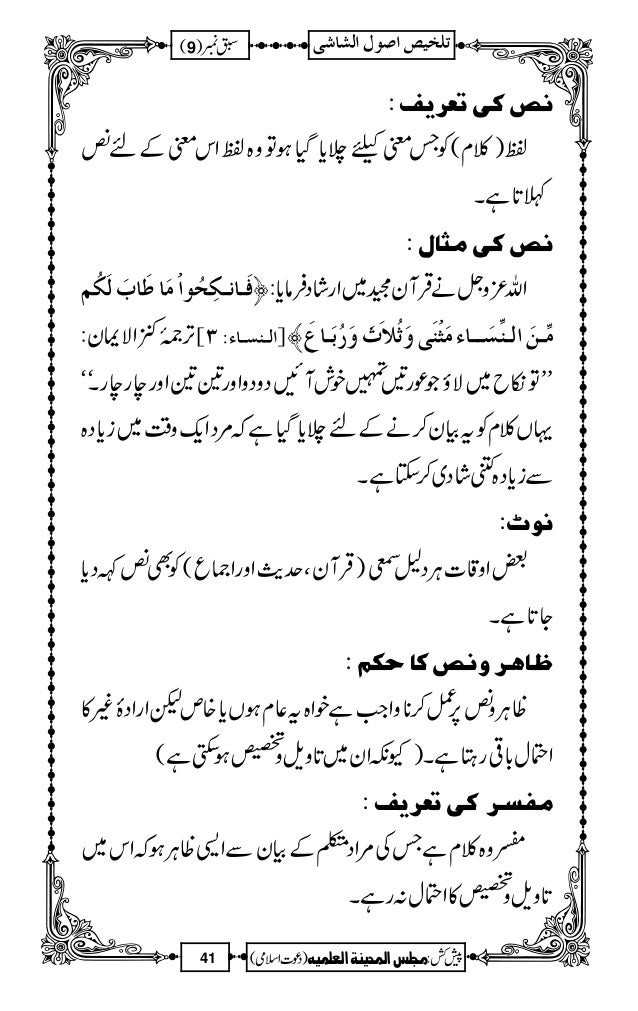 تلخیص اصول الشاشی
سبق نمبر (9)
نص کی تعریف :
لفظ ( کلام ) کو جس معنی کیلئے چلایا گیا ہو تو وہ لفظ اس معنی کے لئے نص
کہلاتا ہے۔
نص کی مثال :
اللہ عزوجل نے قرآن مجید میں ارشاد فرمایا: ﴿فَانكِحُواْ مَا طَابَ لَكُم
مِّنَ النِّسَاء مَثْنَى وَثُلاَثَ وَرُبَاعَ﴾ [النساء: ٣] ترجمۂ کنز الایمان:
’’تو نکاح میں لاؤ جو عورتیں تمہیں خوش آئیں دو دو اور تین تین اور چار چار۔‘‘
یہاں کلام کو یہ بیان کرنے کے لئے چلایا گیا ہے کہ مرد ایک وقت میں زیادہ
سے زیادہ کتنی شادی کرسکتا ہے۔
نوٹ:
بعض اوقات ہر دلیل سمعی ( قرآن ، حدیث اور اجماع ) کو بھی نص کہہ دیا
جاتا ہے۔
ظاہر ونص کا حکم :
ظاہر ونص پر عمل کرنا واجب ہے خواہ یہ عام ہوں یا خاص لیکن ارادۂ غیر کا
احتمال باقی رہتا ہے۔ ( کیونکہ ان میں تاویل وتخصیص ہوسکتی ہے )
مفسر کی تعریف :
مفسر وہ کلام ہے جس کی مراد متکلم کے بیان سے ایسی ظاہر ہو کہ اس میں
تاویل وتخصیص کا احتمال نہ رہے۔
پیش کش: مجلس المدینة العلمیه (دعوت اسلامی)
41